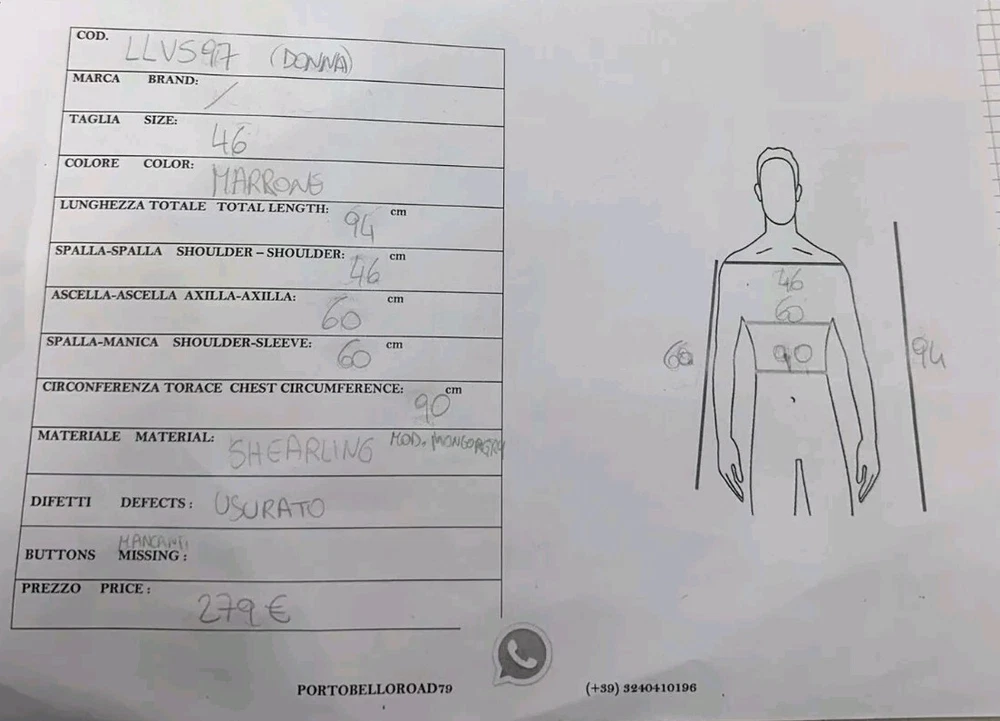 COD. LLVS97 (DONNA)
MARCA BRAND: /
TAGLIA SIZE: 46
COLORE COLOR: MARRONE
LUNGHEZZA TOTALE TOTAL LENGTH: 94 cm
SPALLA-SPALLA SHOULDER – SHOULDER: 46 cm
ASCELLA-ASCELLA AXILLA-AXILLA: 60 cm
SPALLA-MANICA SHOULDER-SLEEVE: 60 cm
CIRCONFERENZA TORACE CHEST CIRCUMFERENCE: 90 cm
MATERIALE MATERIAL: SHEARLING MOD.
DIFETTI DEFECTS: USURATO
MANCANTI
BUTTONS MISSING:
PREZZO PRICE: 279 €
46
60
60
90
94
PORTOBELLOROAD79
(+39) 3240410196